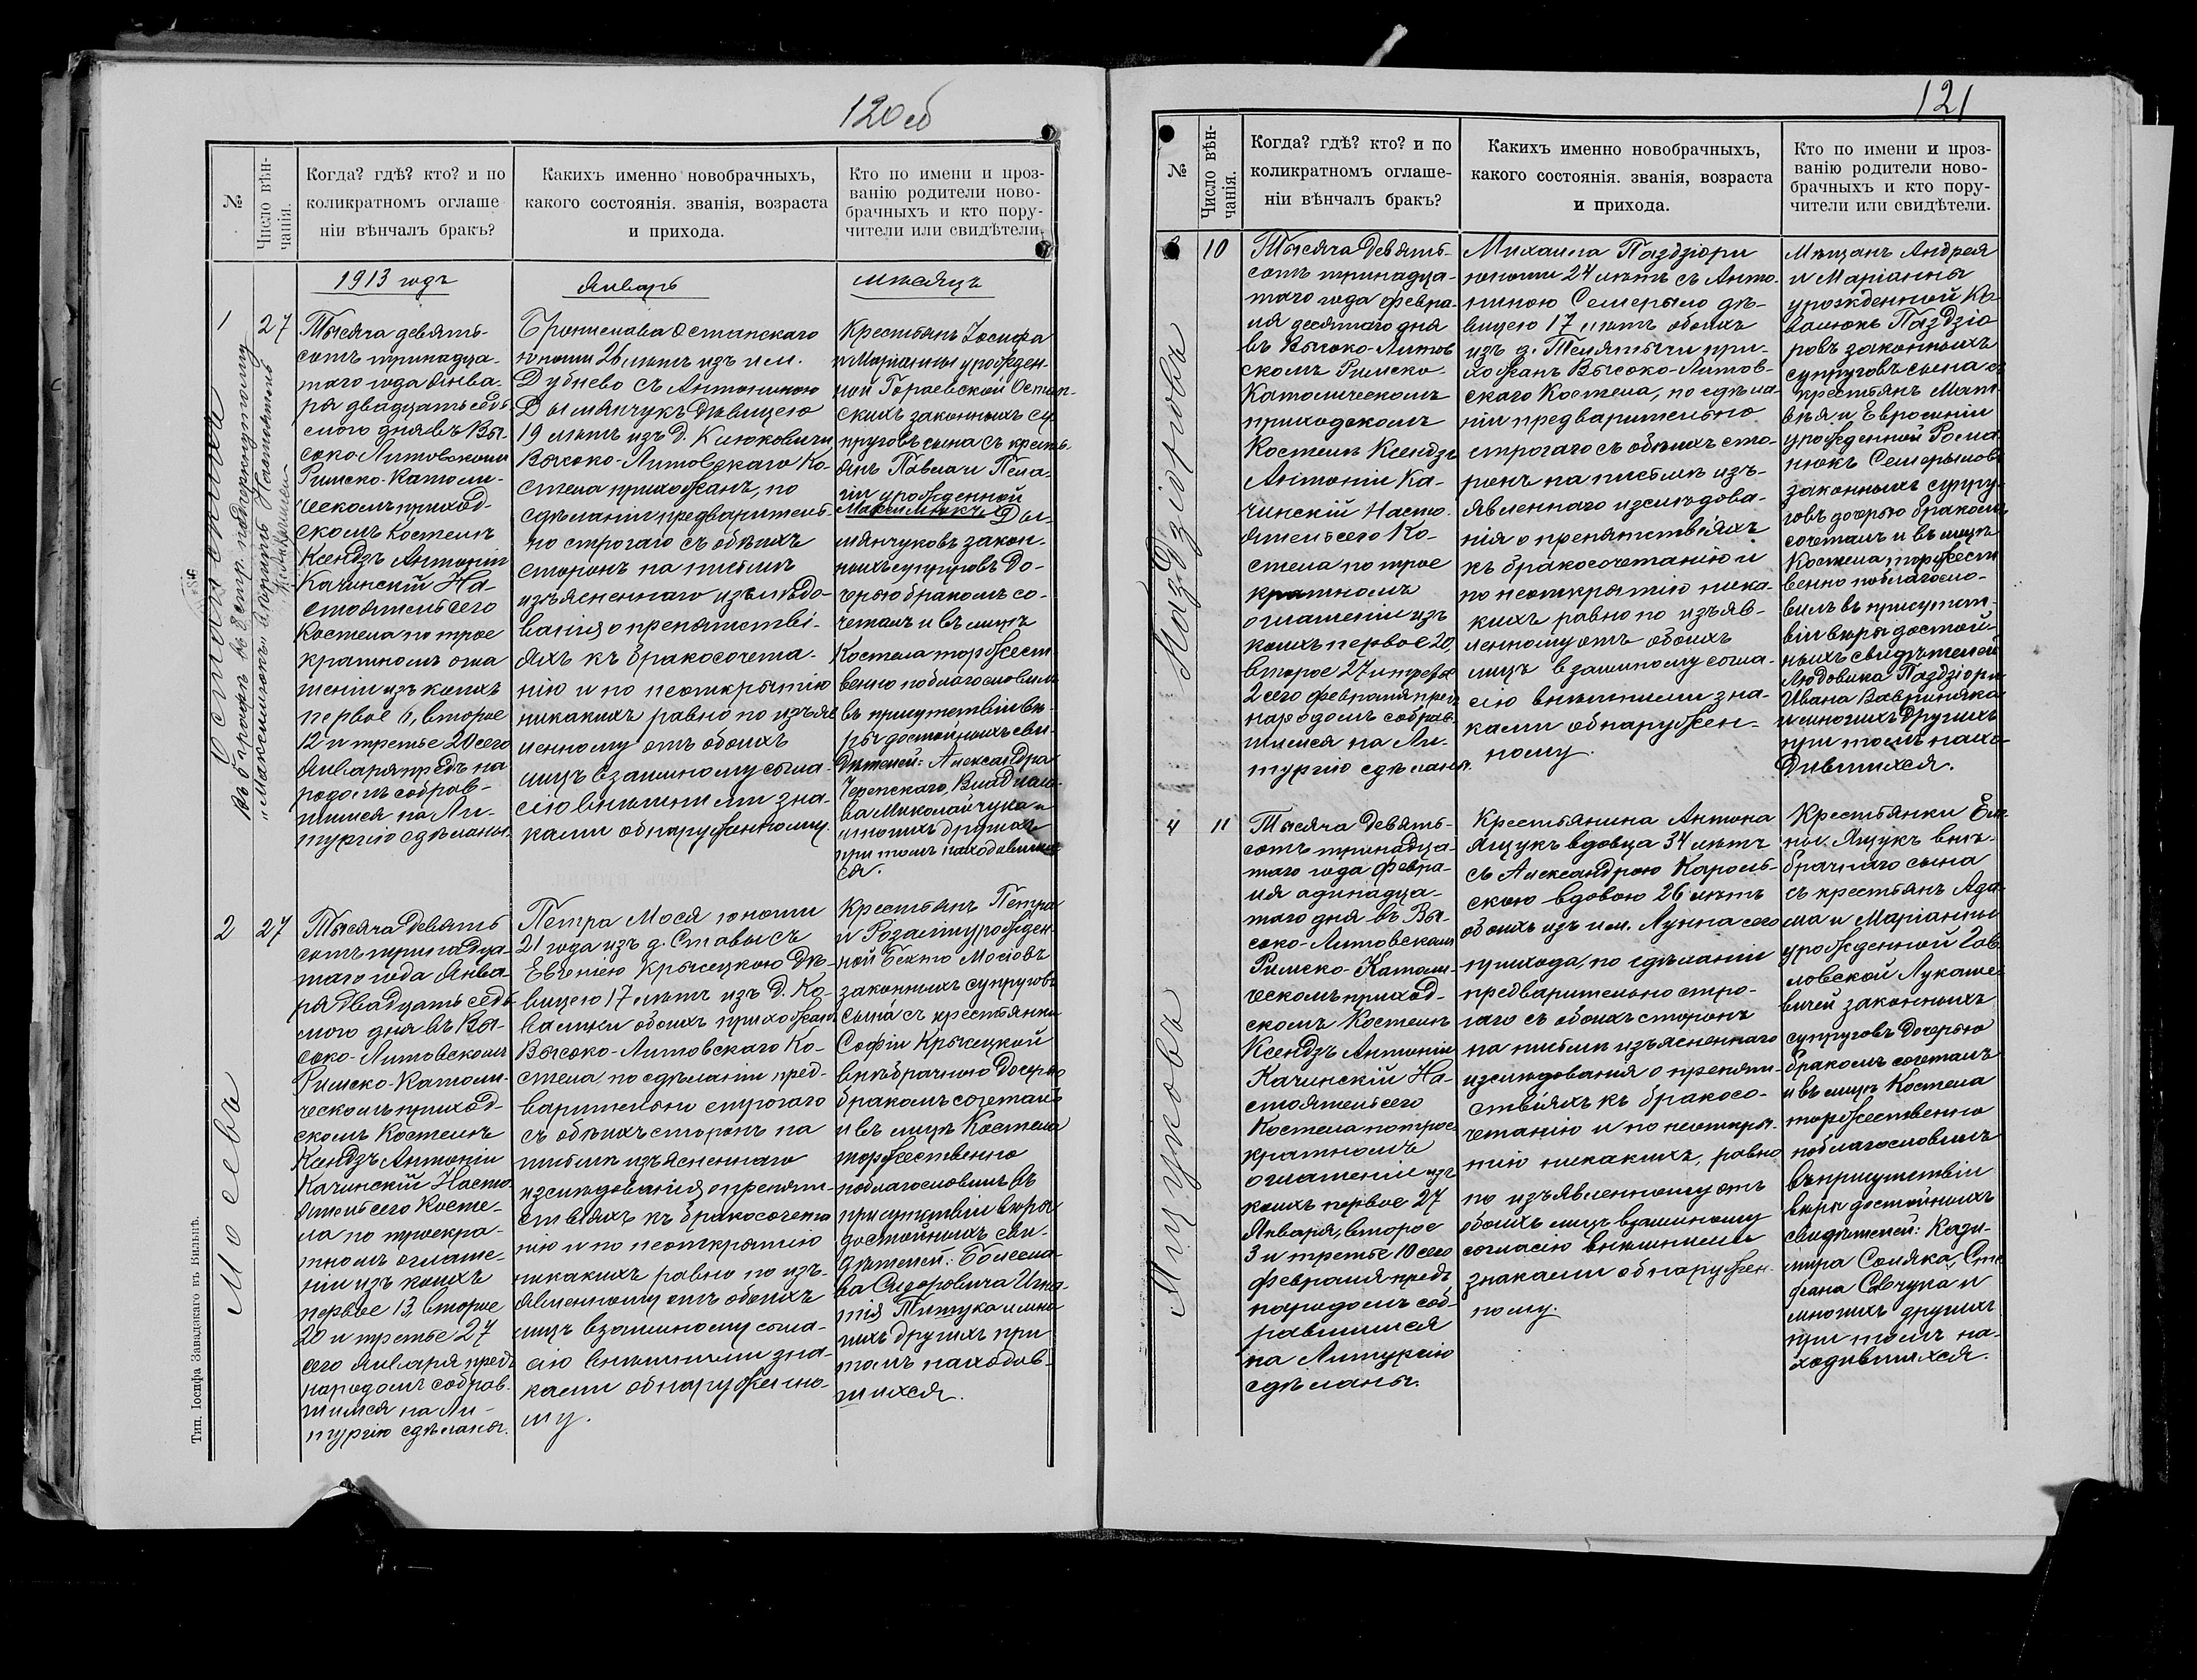 120об
№
Число вѣн-
чанія.
Когда? гдѣ? кто? и по
коликратномъ оглаше
ніи вѣнчалъ бракъ?
Какихъ именно новобрачныхъ,
какого состоянія. званія, возраста
и прихода.
Кто по имени и проз-
ванію родители ново-
брачныхъ и кто пору-
чители или свидѣтели.
1913 годъ
Январь
мѣсяцъ
Остапскихъ
въ 8 стр. подчеркнутому
„Максимюкъ" вѣрить Настоятель
1
27
Тысяча девять-
сотъ тринадца-
таго года Янва-
ря двадцать седь
мого дня въ Вы-
соко-Литовскомъ
Римско-Католи-
ческомъ приход-
скомъ Костелѣ
Ксендзъ Антоній
Качинскій На-
стоятель сего
Костела по трое
кратномъ огла
шеніи изъ коихъ
первое 6, второе
12 и третье 20 сего
Января предъ на
родомъ собрав-
шимся на Ли-
тургію сдѣланы.
Бронислава Остапскаго
юноши 26 лѣтъ изъ им.
Дубнево съ Антониною
Дымянчукъ Дѣвицею
19 лѣтъ изъ д. Клюковичи
Высоко-Литовскаго Ко-
стела прихожанъ, по
сдѣланіи предваритель-
но строгаго съ обѣихъ
сторонъ на письмѣ
изъясненнаго изслѣдо-
ванія о препятстві-
яхъ къ бракосочета-
нію и по неоткрытію
никакихъ равно по изъяв
ленному отъ обоихъ
лицъ взаимному согла-
сію внѣшними зна-
ками обнаруженному.
Крестьянъ Іосифа
и Маріанны урожден-
ной Гораевской Остап-
скихъ законныхъ су-
пруговъ сына съ кресть-
янъ Павла и Пела-
гіи урожденной
Максимюкъ Ды-
мянчуковъ закон-
ныхъ супруговъ до-
черью бракомъ со-
четалъ и въ лицѣ
Костела торжест
венно поблагословилъ
въ присутствіи вѣ-
ры достойныхъ сви-
дѣтелей: Александра
Черепскаго, Владисла-
ва Миколайчука и
многихъ другихъ
при томъ находившихъ
ся.
Мосевъ
2
27
Тысяча Девять
сотъ тринадца-
таго года Янва-
ря двадцать седь
мого дня въ Вы-
соко-Литовскомъ
Римско-Католи-
ческомъ приход-
скомъ Костелѣ
Ксендзъ Антоній
Качинскій Насто
ятель сего Косте-
ла по троекра-
тномъ оглаше-
ніи изъ коихъ
первое 13, второе
20 и третье 27
сего Января предъ
народомъ собрав-
шимся на Ли-
тургію сдѣланы.
Петра Мося юноши
21 года изъ д. Ставы съ
Евгенею Крыжецкою Дѣ-
вицею 17 лѣтъ изъ д. Ко-
валики обоихъ прихожанъ
Высоко-Литовскаго Ко-
стела, по сдѣланіи пред-
варительно строгаго
съ обѣихъ сторонъ на
письмѣ изъясненнаго
изслѣдованія о препят-
ствіяхъ къ бракосочета
нію и по неоткрытію
никакихъ равно по изъ-
явленному отъ обоихъ
лицъ взаимному согла-
сію внѣшними зна-
ками обнаруженно-
му.
Крестьянъ Петра
и Розаліи урожден-
ной Бекто Мосовъ
законныхъ супруговъ
сына съ крестьянки
Софіи Крыжецкой
внѣбрачною дочерью
бракомъ сочеталъ
и въ лицѣ Костела
торжественно
поблагословилъ въ
присутствіи вѣры
достойныхъ сви-
дѣтелей: Болесла-
ва Сидоровича Игна-
тія Титука и мно-
гихъ другихъ при
томъ находив-
шихся.
Тип. Іосифа Завадзкаго въ Вильнѣ.
121
№
Число вѣн-
чанія.
Когда? гдѣ? кто? и по
коликратномъ оглаше-
ніи вѣнчалъ бракъ?
Какихъ именно новобрачныхъ,
какого состоянія. званія, возраста
и прихода.
Кто по имени и проз-
ванію родители ново-
брачныхъ и кто пору-
чители или свидѣтели.
Паздзіоровъ
10
Тысяча Девять-
сотъ тринадца-
таго года февра-
ля десятаго дня
въ Высоко-Литов
скомъ Римско-
Католическомъ
приходскомъ
Костелѣ Ксендзъ
Антоній Ка-
чинскій Насто-
ятель сего Ко-
стела по трое
кратномъ
оглашеніи изъ
коихъ первое 20,
второе 27 и третье
2 сего февраля предъ
народомъ собрав-
шимся на Ли-
тургію сдѣланы.
Михаила Паздзіоры
юноши 24 лѣтъ съ Анто-
ниною Семерыло дѣ-
вицею 17 лѣтъ обоихъ
изъ д. Телятычи при-
хожанъ Высоко-Литов-
скаго Костела, по сдѣла
ніи предварительно
строгаго съ обѣихъ сто-
ронъ на письмѣ изъ-
явленнаго изслѣдова-
нія о препятствіяхъ
къ бракосочетанію и
по неоткрытію ника-
кихъ равно по изъяв-
ленному отъ обоихъ
лицъ взаимному согла-
сію внѣшними зна-
ками обнаружен-
ному.
Мѣщанъ Андрея
и Маріанны
урожденной Ко-
валюкъ Паздзіо
ровъ законныхъ
супруговъ сына съ
крестьянъ Мат
вѣя и Евросиніи
урожденной Рома
нюкъ Семерыловъ
законныхъ супру-
говъ дочерью бракомъ
сочеталъ и въ лицѣ
Костела торжест
венно поблагосло-
вилъ въ присутст-
віи вѣры достой-
ныхъ свидѣтелей
Людовика Паздзіоры
Ивана Вавриняка
и многихъ другихъ
при томъ нахо-
дившихся.
Ящуковъ
4
11
Тысяча Девять-
сотъ тринадца-
таго года Февра-
ля адинадца-
таго дня въ Вы-
соко-Литовскомъ
Римско-Католи-
ческомъ приход-
скомъ Костелѣ
Ксендзъ Антоній
Качинскій На-
стоятель сего
Костела по трое
кратномъ
оглашеніи изъ
коихъ первое 27
Января, второе
3 и третье 10 сего
февраля предъ
народомъ соб-
равшимся
на Литургію
сдѣланы.
Крестьянина Антона
Ящукъ вдовца 34 лѣтъ
съ Александрою Кароль-
скою вдовою 26 лѣтъ
обоихъ изъ им. Лунна сего
прихода, по сдѣланіи
предварительно стро-
гаго съ обоихъ сторонъ
на письмѣ изъясненнаго
изслѣдованія о препят-
ствіяхъ къ бракосо-
четанію и по неоткры-
тію никакихъ, равно
по изъявленному отъ
обоихъ лицъ взаимному
согласію внѣшними
знаками обнаружен-
ному.
Крестьянки Еле-
ны Ящукъ внѣ-
брачнаго сына
съ крестьянъ Ада
ма и Маріанны
урожденной Гав
ловской Лукаше-
вичей законныхъ
супруговъ дочерью
бракомъ сочеталъ
и въ лицѣ Костела
торжественно
поблагословилъ
въ присутствіи
вѣры достойныхъ
свидѣтелей: Кази-
мира Соляка, Сте
фана Савчука и
многихъ другихъ
при томъ на-
ходившихся.